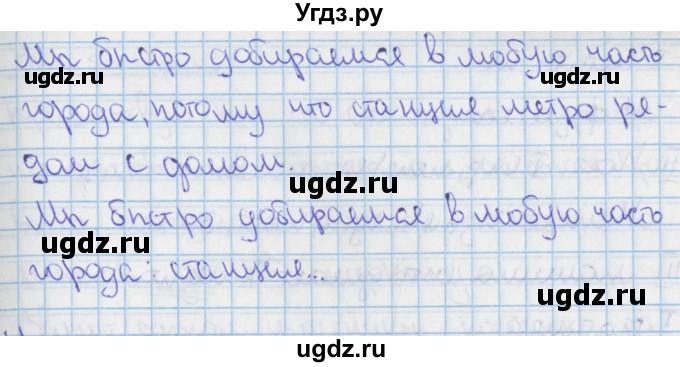 Угдз.ру
Мы быстро добираемся в любую часть
ugdz.ru ugdz.ru
города, потому что станция метро ря-
ugdz.ru
дом с домом.
ugdz.ru
Мы быстро добираемся в любую часть
ugdz.ru
города: станция...
ugdz.ru
ugdz.ru